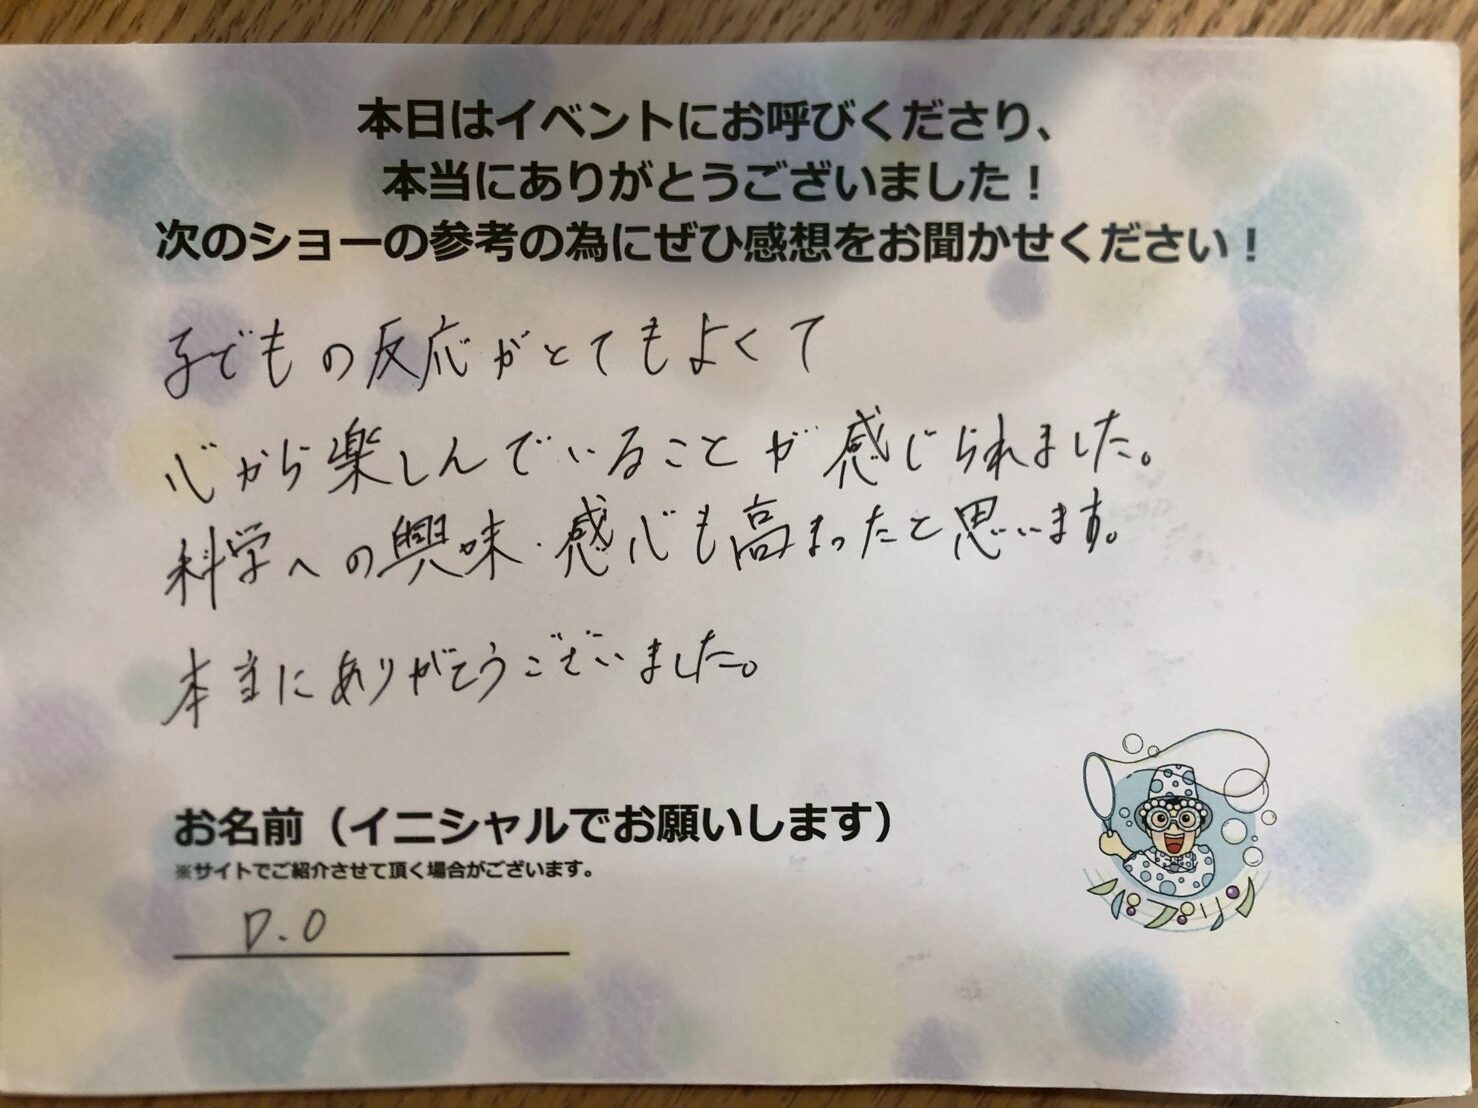 本日はイベントにお呼びくださり、
本当にありがとうございました！
次のショーの参考の為にぜひ感想をお聞かせください！
子どもの反応がとてもよくて
心から楽しんでいることが感じられました。
科学への興味・感心も高まったと思います。
本当にありがとうございました。
お名前（イニシャルでお願いします）
※サイトでご紹介させて頂く場合がございます。
D.O
バブリン